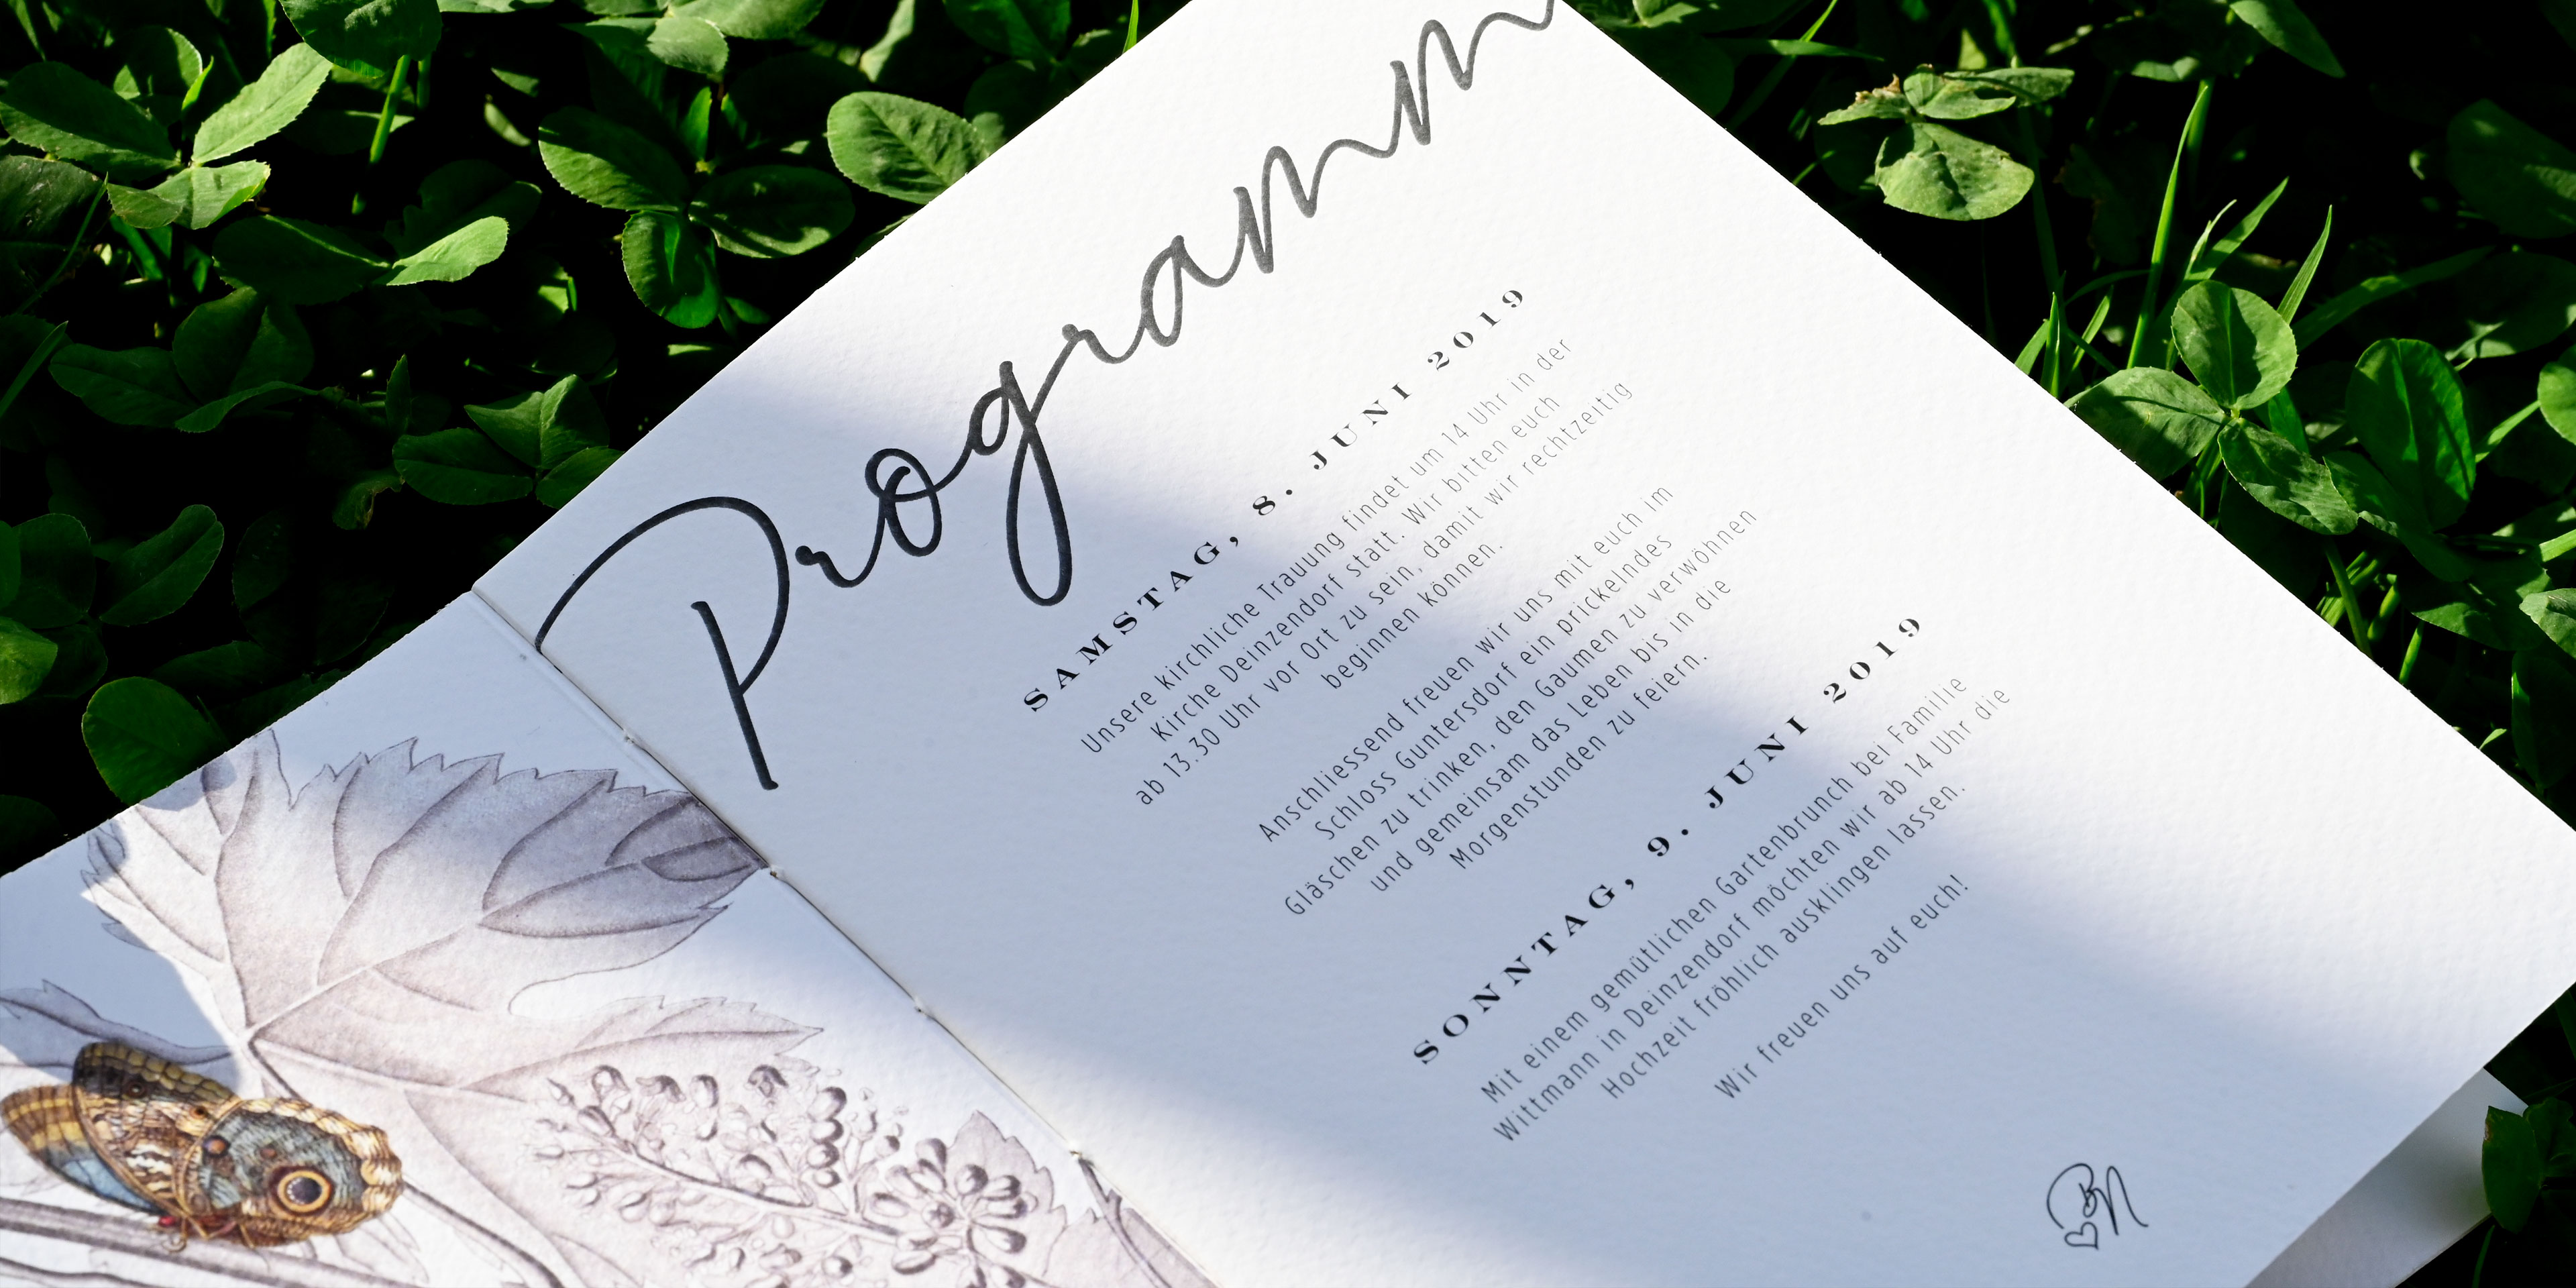 Programm
SAMSTAG, 8. JUNI 2019
Unsere kirchliche Trauung findet um 14 Uhr in der
Kirche Deinzendorf statt. Wir bitten euch
ab 13.30 Uhr vor Ort zu sein, damit wir rechtzeitig
beginnen können.
Anschliessend freuen wir uns mit euch im
Schloss Guntersdorf ein prickelndes
Gläschen zu trinken, den Gaumen zu verwöhnen
und gemeinsam das Leben bis in die
Morgenstunden zu feiern.
SONNTAG, 9. JUNI 2019
Mit einem gemütlichen Gartenbrunch bei Familie
Wittmann in Deinzendorf möchten wir ab 14 Uhr die
Hochzeit fröhlich ausklingen lassen.
Wir freuen uns auf euch!